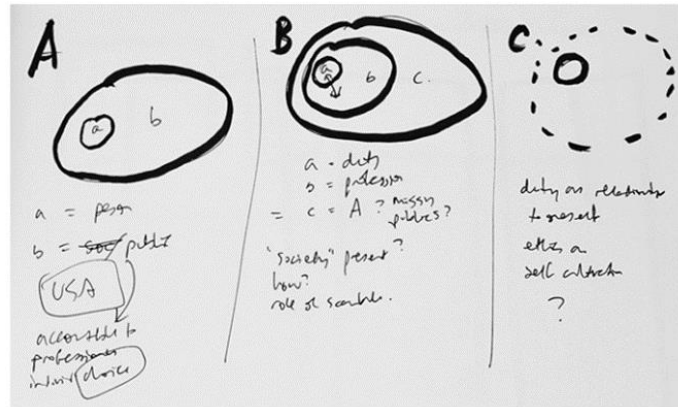 A
a
b
a = person
b = soc/ public
USA
accessible to
professions
individ choice
B
a
b
c.
a = duty
b = profession
= c = A ? missing
publics?
"society" present?
how?
role of
C
duty as relationship
to present
ethics as
self
?